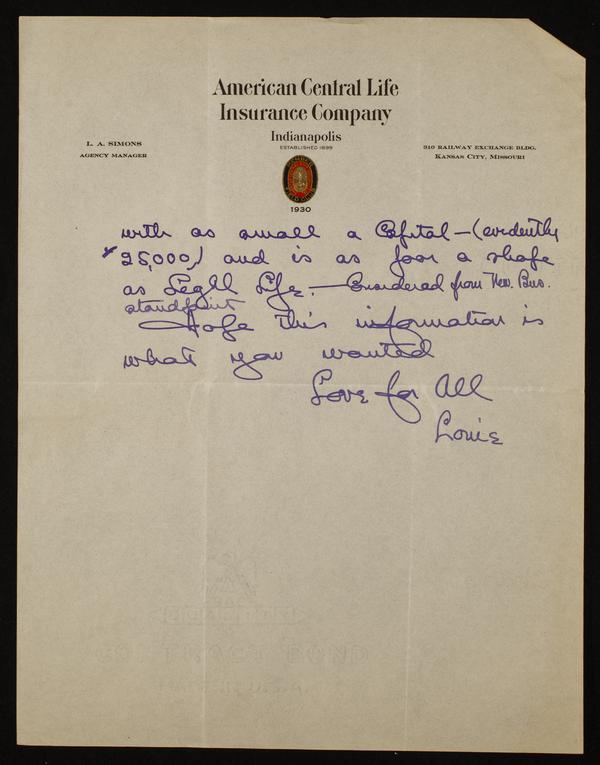 American Central Life
Insurance Company
Indianapolis
ESTABLISHED 1899
L. A. SIMONS
AGENCY MANAGER
310 RAILWAY EXCHANGE BLDG.
KANSAS CITY, MISSOURI
1930
with as small a Capital – (evidently
$25,000) and is as poor a shape
as Legal Life. – Considered from New. Bus.
standpoint
Hope this information is
what you wanted
Love for All
Louie